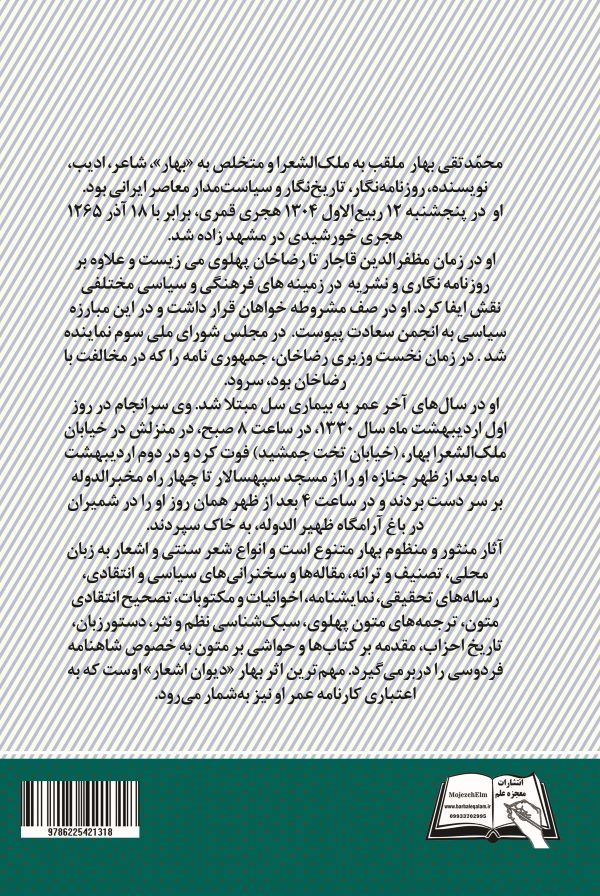 محمّدتقی بهار ملقب به ملک‌الشعرا و متخلص به «بهار»، شاعر، ادیب،
نویسنده، روزنامه‌نگار، تاریخ‌نگار و سیاست‌مدار معاصر ایرانی بود.
او در پنجشنبه ۱۲ ربیع‌الاول ۱۳۰۴ هجری قمری، برابر با ۱۸ آذر ۱۲۶۵
هجری خورشیدی در مشهد زاده شد.
او در زمان مظفرالدین قاجار تا رضاخان پهلوی می زیست و علاوه بر
روزنامه نگاری و نشریه در زمینه های فرهنگی و سیاسی مختلفی
نقش ایفا کرد. او در صف مشروطه خواهان قرار داشت و در این مبارزه
سیاسی به انجمن سعادت پیوست. در مجلس شورای ملی سوم نماینده
شد . در زمان نخست وزیری رضاخان، جمهوری نامه را که در مخالفت با
رضاخان بود، سرود.
او در سال‌های آخر عمر به بیماری سل مبتلا شد. وی سرانجام در روز
اول اردیبهشت ماه سال ۱۳۳۰، در ساعت ۸ صبح، در منزلش در خیابان
ملک‌الشعرا بهار، (خیابان تخت جمشید) فوت کرد و در دوم اردیبهشت
ماه بعد از ظهر جنازه او را از مسجد سپهسالار تا چهار راه مخبرالدوله
بر سر دست بردند و در ساعت ۴ بعد از ظهر همان روز او را در شمیران
در باغ آرامگاه ظهیر الدوله، به خاک سپردند.
آثار منثور و منظوم بهار متنوع است و انواع شعر سنتی و اشعار به زبان
محلی، تصنیف و ترانه، مقاله‌ها و سخنرانی‌های سیاسی و انتقادی،
رساله‌های تحقیقی، نمایشنامه، اخوانیات و مکتوبات، تصحیح انتقادی
متون، ترجمه‌های متون پهلوی، سبک‌شناسی نظم و نثر، دستورزبان،
تاریخ احزاب، مقدمه بر کتاب‌ها و حواشی بر متون به خصوص شاهنامه
فردوسی را دربرمی‌گیرد. مهم‌ترین اثر بهار «دیوان اشعار» اوست که به
اعتباری کارنامه عمر او نیز به‌شمار می‌رود.
انتشارات
معجزه علم
MojezehElm
www.barbaleqalam.ir
09933702995
9786225421318